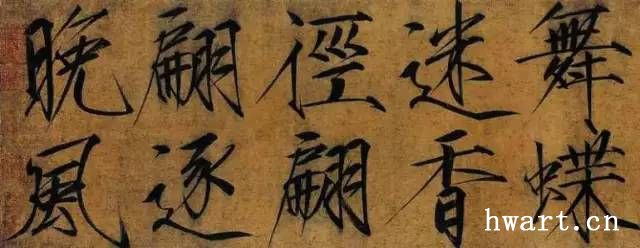 舞蝶
迷香
徑翩
翩逐
晚風
hwart.cn